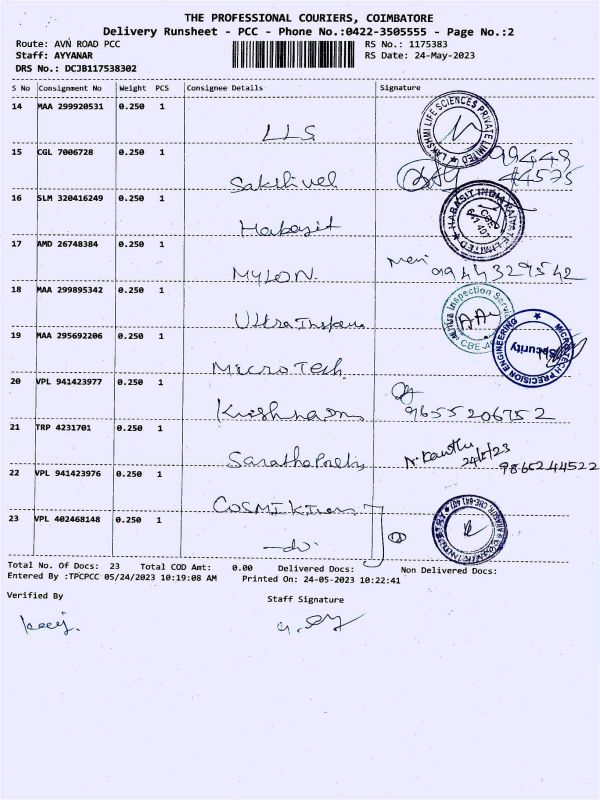 THE PROFESSIONAL COURIERS, COIMBATORE
Delivery Runsheet - PCC - Phone No.:0422-3505555 - Page No.:2
Route: AVN ROAD PCC
RS No.: 1175383
Staff: AYYANAR
RS Date: 24-May-2023
DRS No.: DCJB117538302
S No Consignment No Weight PCS Consignee Details Signature
14 MAA 299920531 0.250 1
LLS
LAKSHMI LIFE SCIENCES PRIVATE LIMITED
15 CGL 7006728 0.250 1
Sakthivel
99448
44575
16 SLM 320416249 0.250 1
Habasit
HABASIT INDIA PRIVATE LIMITED
17 AMD 26748384 0.250 1
MYLON
9944329542
18 MAA 299895342 0.250 1
Ultra
Inspection
19 MAA 295692206 0.250 1
MICRO Tech
MICROTECH PRECISION ENGINEERING
Security
20 VPL 941423977 0.250 1
9655206752
21 TRP 4231701 0.250 1
24/5/23
9865244522
22 VPL 941423976 0.250 1
COSMIK
23 VPL 402468148 0.250 1
-do-
Total No. Of Docs: 23 Total COD Amt: 0.00 Delivered Docs: Non Delivered Docs:
Entered By :TPCPCC 05/24/2023 10:19:08 AM Printed On: 24-05-2023 10:22:41
Verified By
Staff Signature